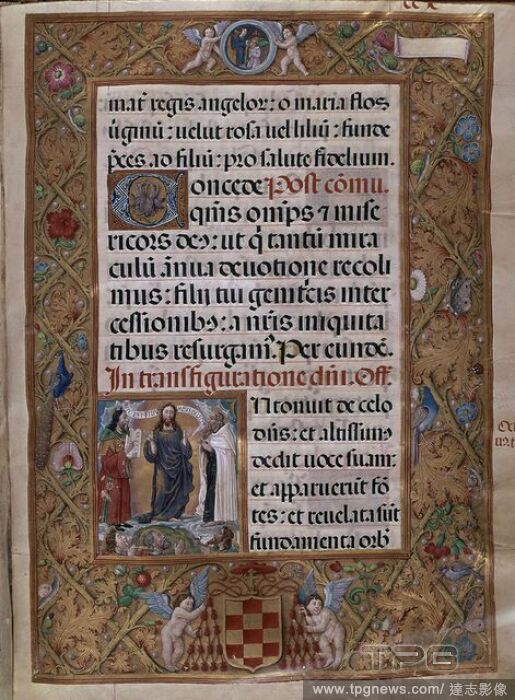 mat̄ regis angeloꝝ: o maria flos
ūginū: uelut rosa uel liliū: funde
p̄ces ad filiū: pro salute fidelium.
Concede Post cōmu.
q̄mis om̄ps ⁊ mise
ricors deꝰ: ut q̄ tantū mira
culū ānua deuotione recoli
mus: filij tui genit̄cis inter
cessionibꝰ: a nr̄is iniquita
tibus resurgamꝰ. Per eundē.
In transfiguratione dn̄i. Off.
Intonuit de celo
dn̄s: et altissimꝰ
dedit uoce suam:
et apparuerūt fō
tes: et reuelata sūt
fundamenta orb̄
TPG
www.tpgnews.com / 達志影像